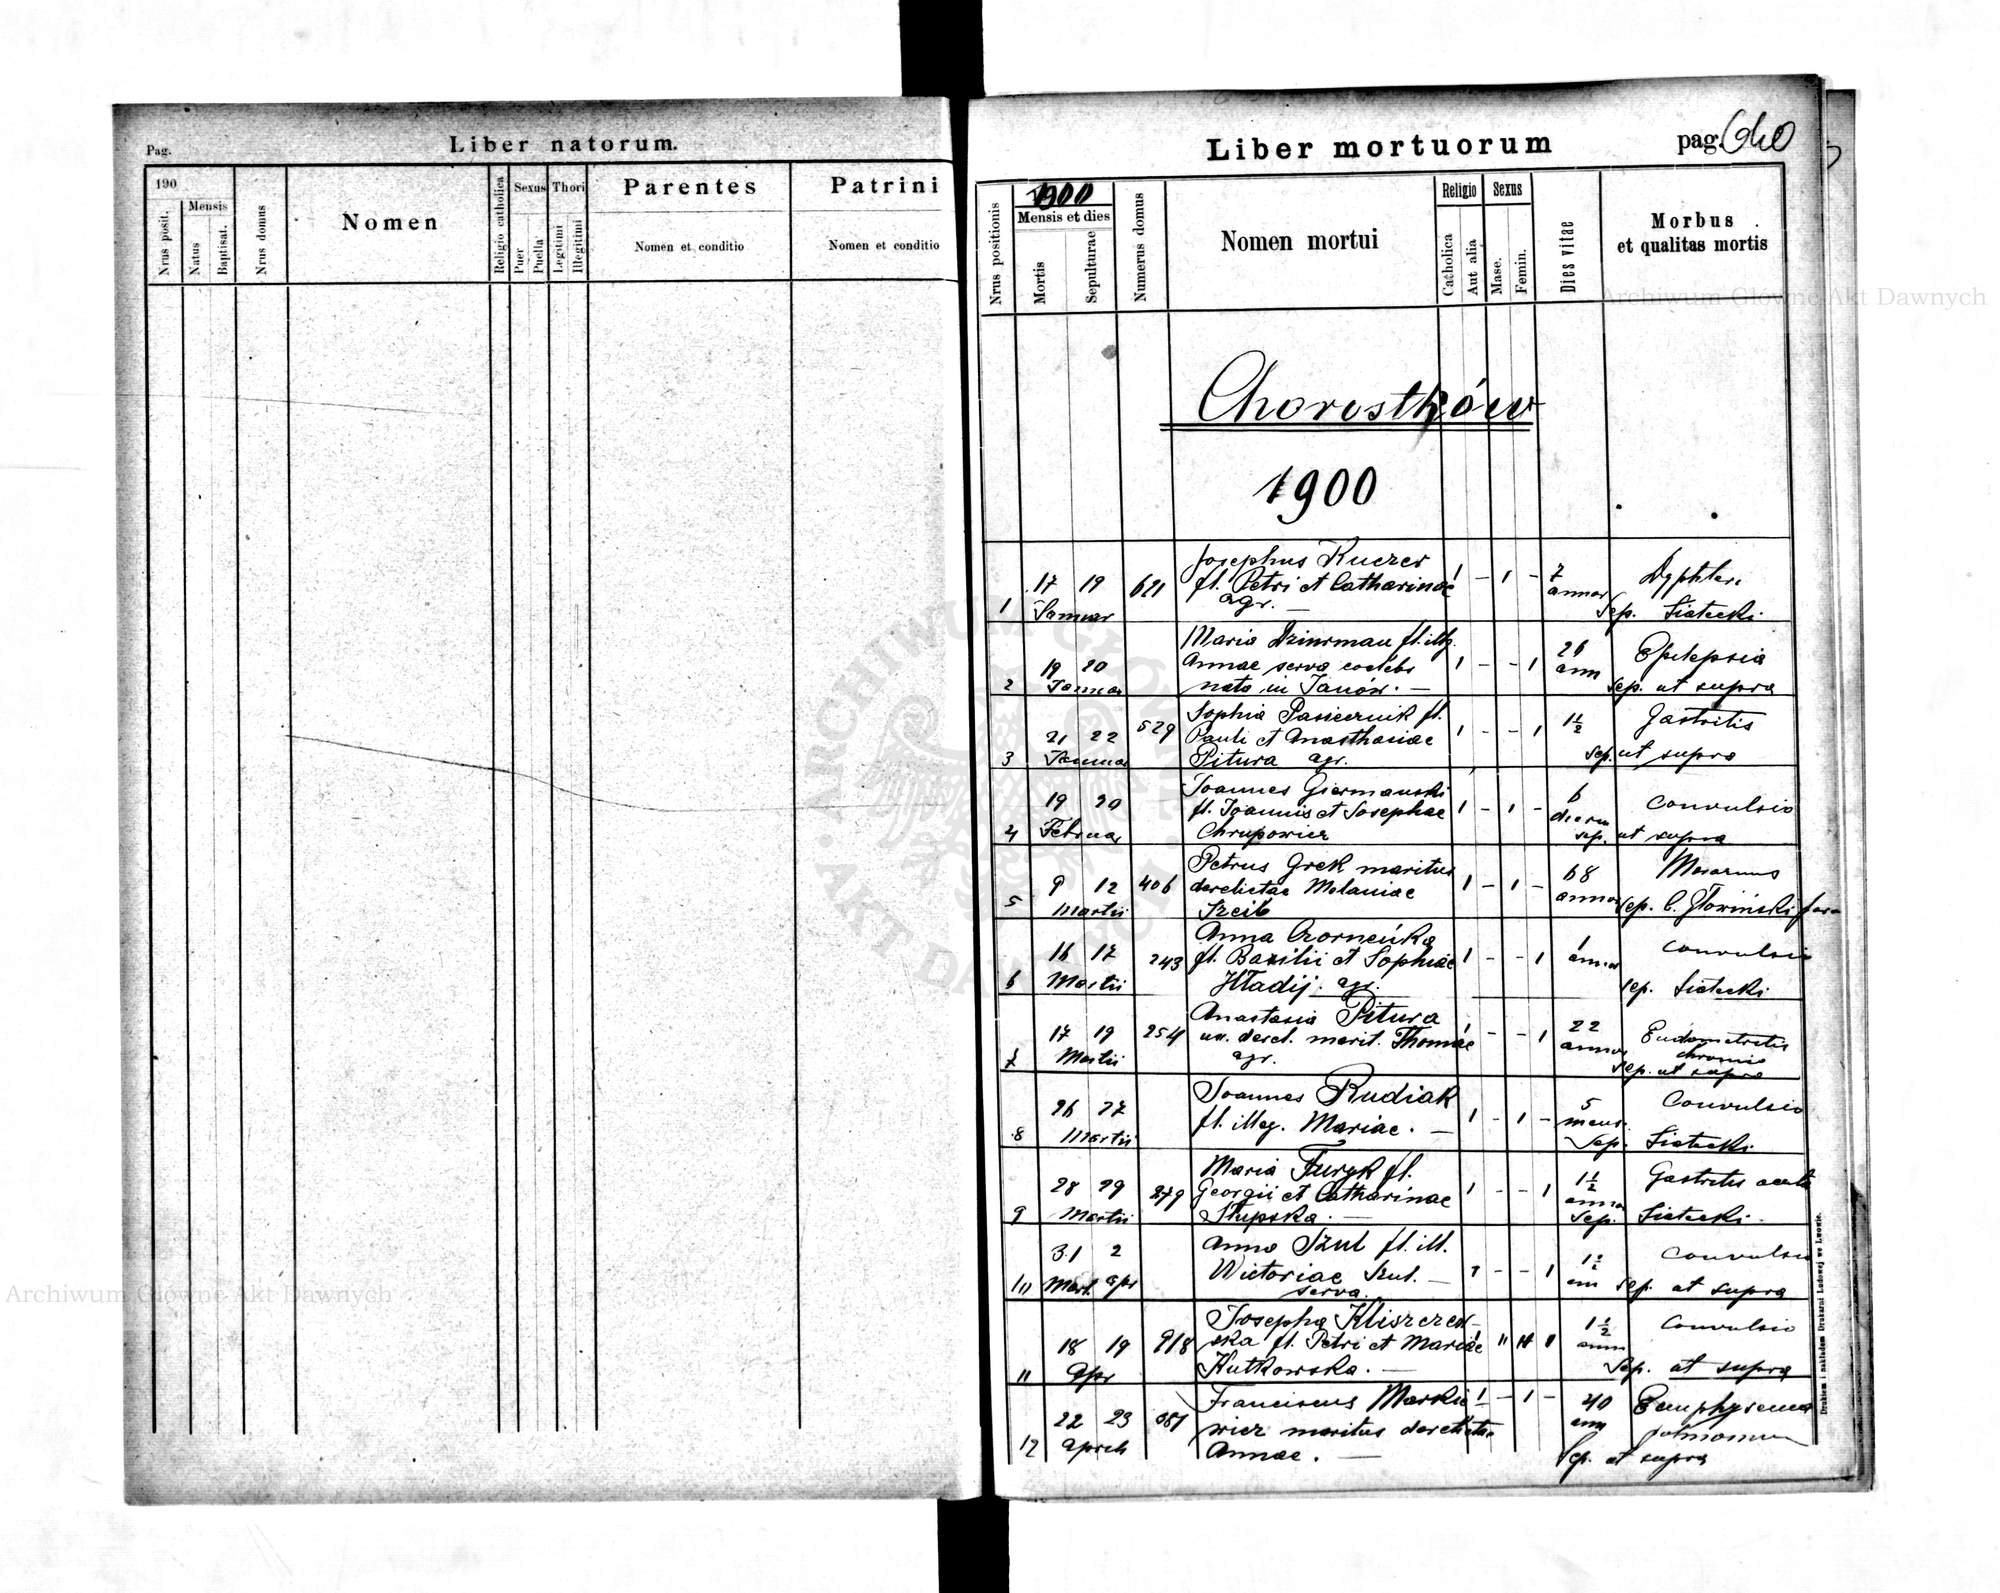 Pag.
Liber natorum.
190
Nrus posit.
Mensis
Natus
Baptisat.
Nrus domus
Nomen
Religio catholica
Sexus
Puer
Puella
Thori
Legitimi
Illegitimi
Parentes
Nomen et conditio
Patrini
Nomen et conditio
Liber mortuorum
pag.
Nrus positionis
1900
Mensis et dies
Mortis
Sepulturae
Numerus domus
Nomen mortui
Religio
Catholica
Aut alia
Sexus
Masc.
Femin.
Dies vitae
Morbus
et qualitas mortis
Chorostków
1900
Josephus Kuczer
1 17 19 Januar 621 fl. Petri et Catharinae 1 - 1 - 7 annor Dyphteri
agr. — Sep. Siatecki
Maria Dzinrman fl. illeg.
2 19 20 Januar Annae serva coelebs 1 - - 1 26 ann Epilepsia
nata in Janów. — Sep. ut supra
Sophia Pasiecznik fl.
3 21 22 Januar 529 Pauli et Anasthasiae 1 - - 1 1½ Gastritis
Pitura agr. Sep. ut supra
Joannes Giermanski
4 19 20 Februar fl. Joannis et Josephae 1 - 1 - 6 dierum Convulsio
Chrupowicz sep. ut supra
Petrus Grek maritus
5 9 12 Martii 406 derelictae Melaniae 1 - 1 - 68 annor Marasmus
Szeib Sep. C. Głowiński
Anna Czorneńka
6 16 17 Martii 243 fl. Bazilii et Sophiae 1 - - 1 1 annor Convulsio
Hładij. agr. Sep. Siatecki
Anastasia Pitura
7 17 19 Martii 254 ux. derel. marit. Thomae 1 - - 1 22 annor Endometritis
agr. chronic
Sep. ut supra
Joannes Rudiak
8 26 27 Martii fl. illeg. Mariae. — 1 - 1 - 5 mens. Convulsio
Sep. Siatecki
Maria Furyk fl.
9 28 29 Martii 279 Georgii et Catharinae 1 - - 1 1½ anno Gastritis acuta
Słupska. — Sep. Siatecki
Anna Szul fl. ill.
10 31 2 Mart. apr Wictoriae Szul. — 1 - - 1 1½ ann Convulsio
serva. Sep. ut supra
Josepha Kliszczew-
11 18 19 Apr 918 ska fl. Petri et Mariae 1½ anni Convulsio
Kutkowska. — Sep. ut supra
Franciscus Markie- 1 - 1 -
12 22 23 Aprili wicz maritus derelictae 40 ann Emphysema
Annae. — pulmonum
Sep. ut supra
Drukiem i nakładem Drukarni Ludowej we Lwowie.
Archiwum Główne Akt Dawnych
Archiwum Główne Akt Dawnych
ARCHIWUM GŁÓWNE AKT DAWNYCH